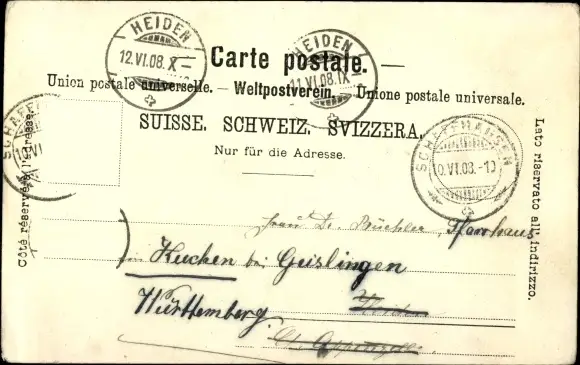 HEIDEN
12.VI.08.X
HEIDEN
11.VI.08.IX
Carte postale.
Union postale universelle. — Weltpostverein. — Unione postale universale.
SUISSE. SCHWEIZ. SVIZZERA.
Nur für die Adresse.
SCHAFFHAUSEN
10.VI.08.-10
Côté réservé à l'adresse.
Lato riservato all' indirizzo.
Frau Dr. Büchler, Pfarrhaus
in Kuchen bei Geislingen
Württemberg.
Heiden
Ct. Appenzell.